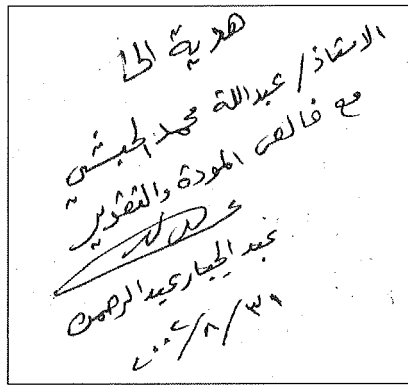 هدية الى
الاستاذ / عبدالله محمد الحبشي
مع خالص المودة والتقدير
عبد الجبار عبد الرحمن
٢٠٠٢/٨/٣١